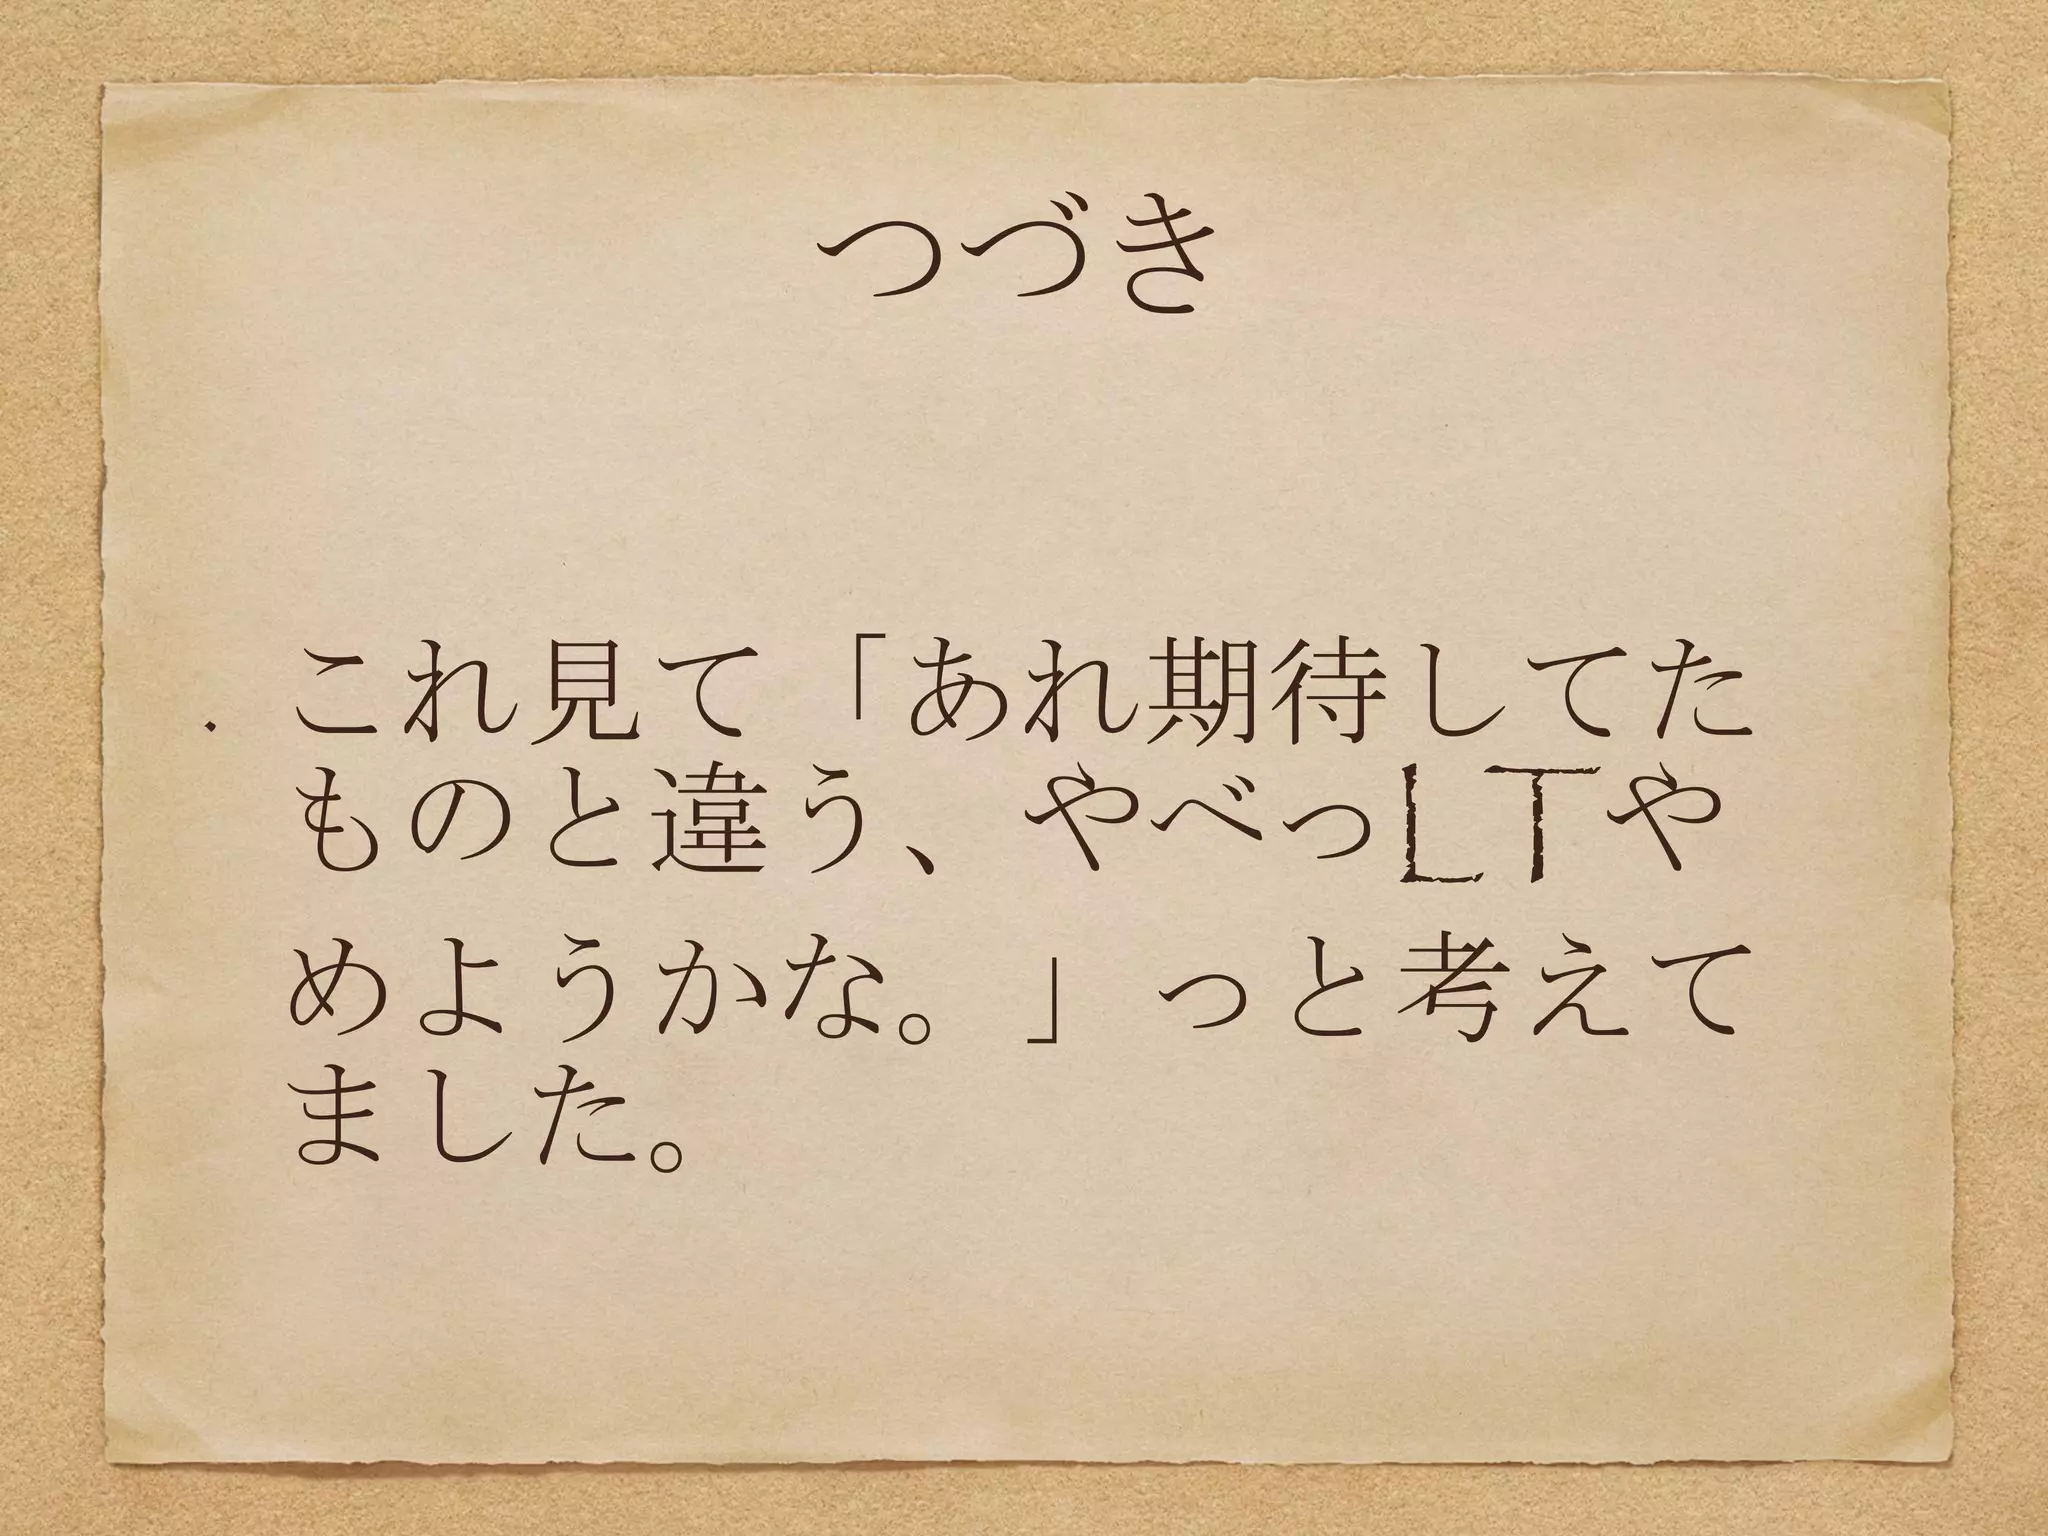 つづき
・これ見て「あれ期待してた
ものと違う、やべっLTや
めようかな。」っと考えて
ました。